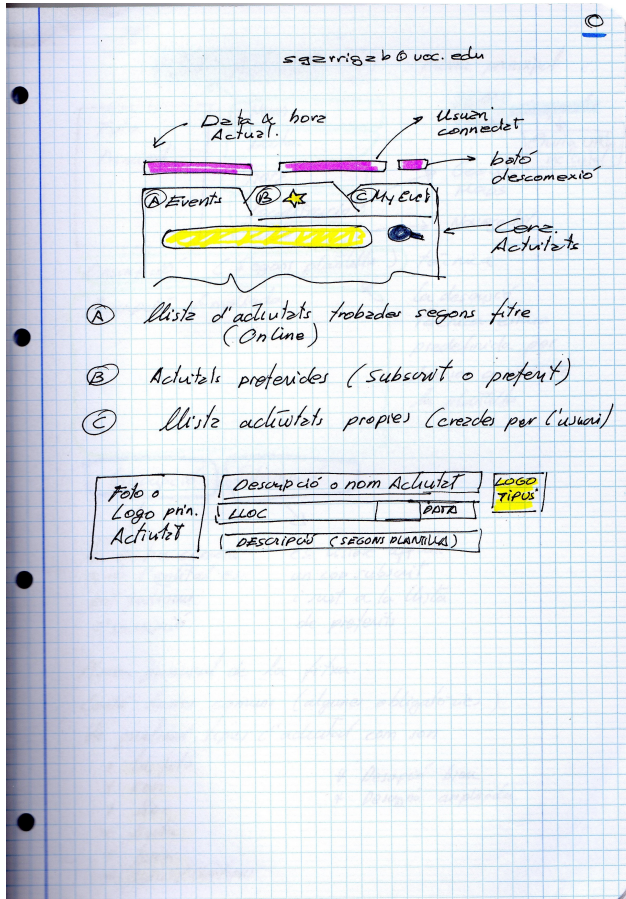 O
sgarrigab@uoc.edu
Data & hora
Actual.
Usuari
connectat
botó
desconnexió
A Events
B
C My Event
Cerca.
Activitats
A Llista d'activitats trobades segons fitre
(Online)
B Activitats preferides (Subscrit o preferit)
C Llista activitats propies (creades per l'usuari)
Foto o
Logo prin.
Activitat
Descripció o nom Activitat
LLOC DATA
DESCRIPCIÓ (SEGONS PLANTILLA)
LOGO
TIPUS